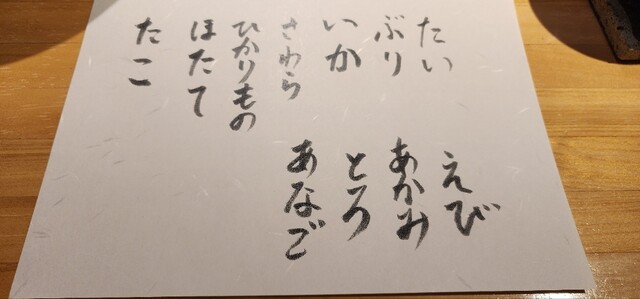 たい
ぶり
いか
さわら
ひかりもの
ほたて
たこ
えび
あかみ
とろ
あなご